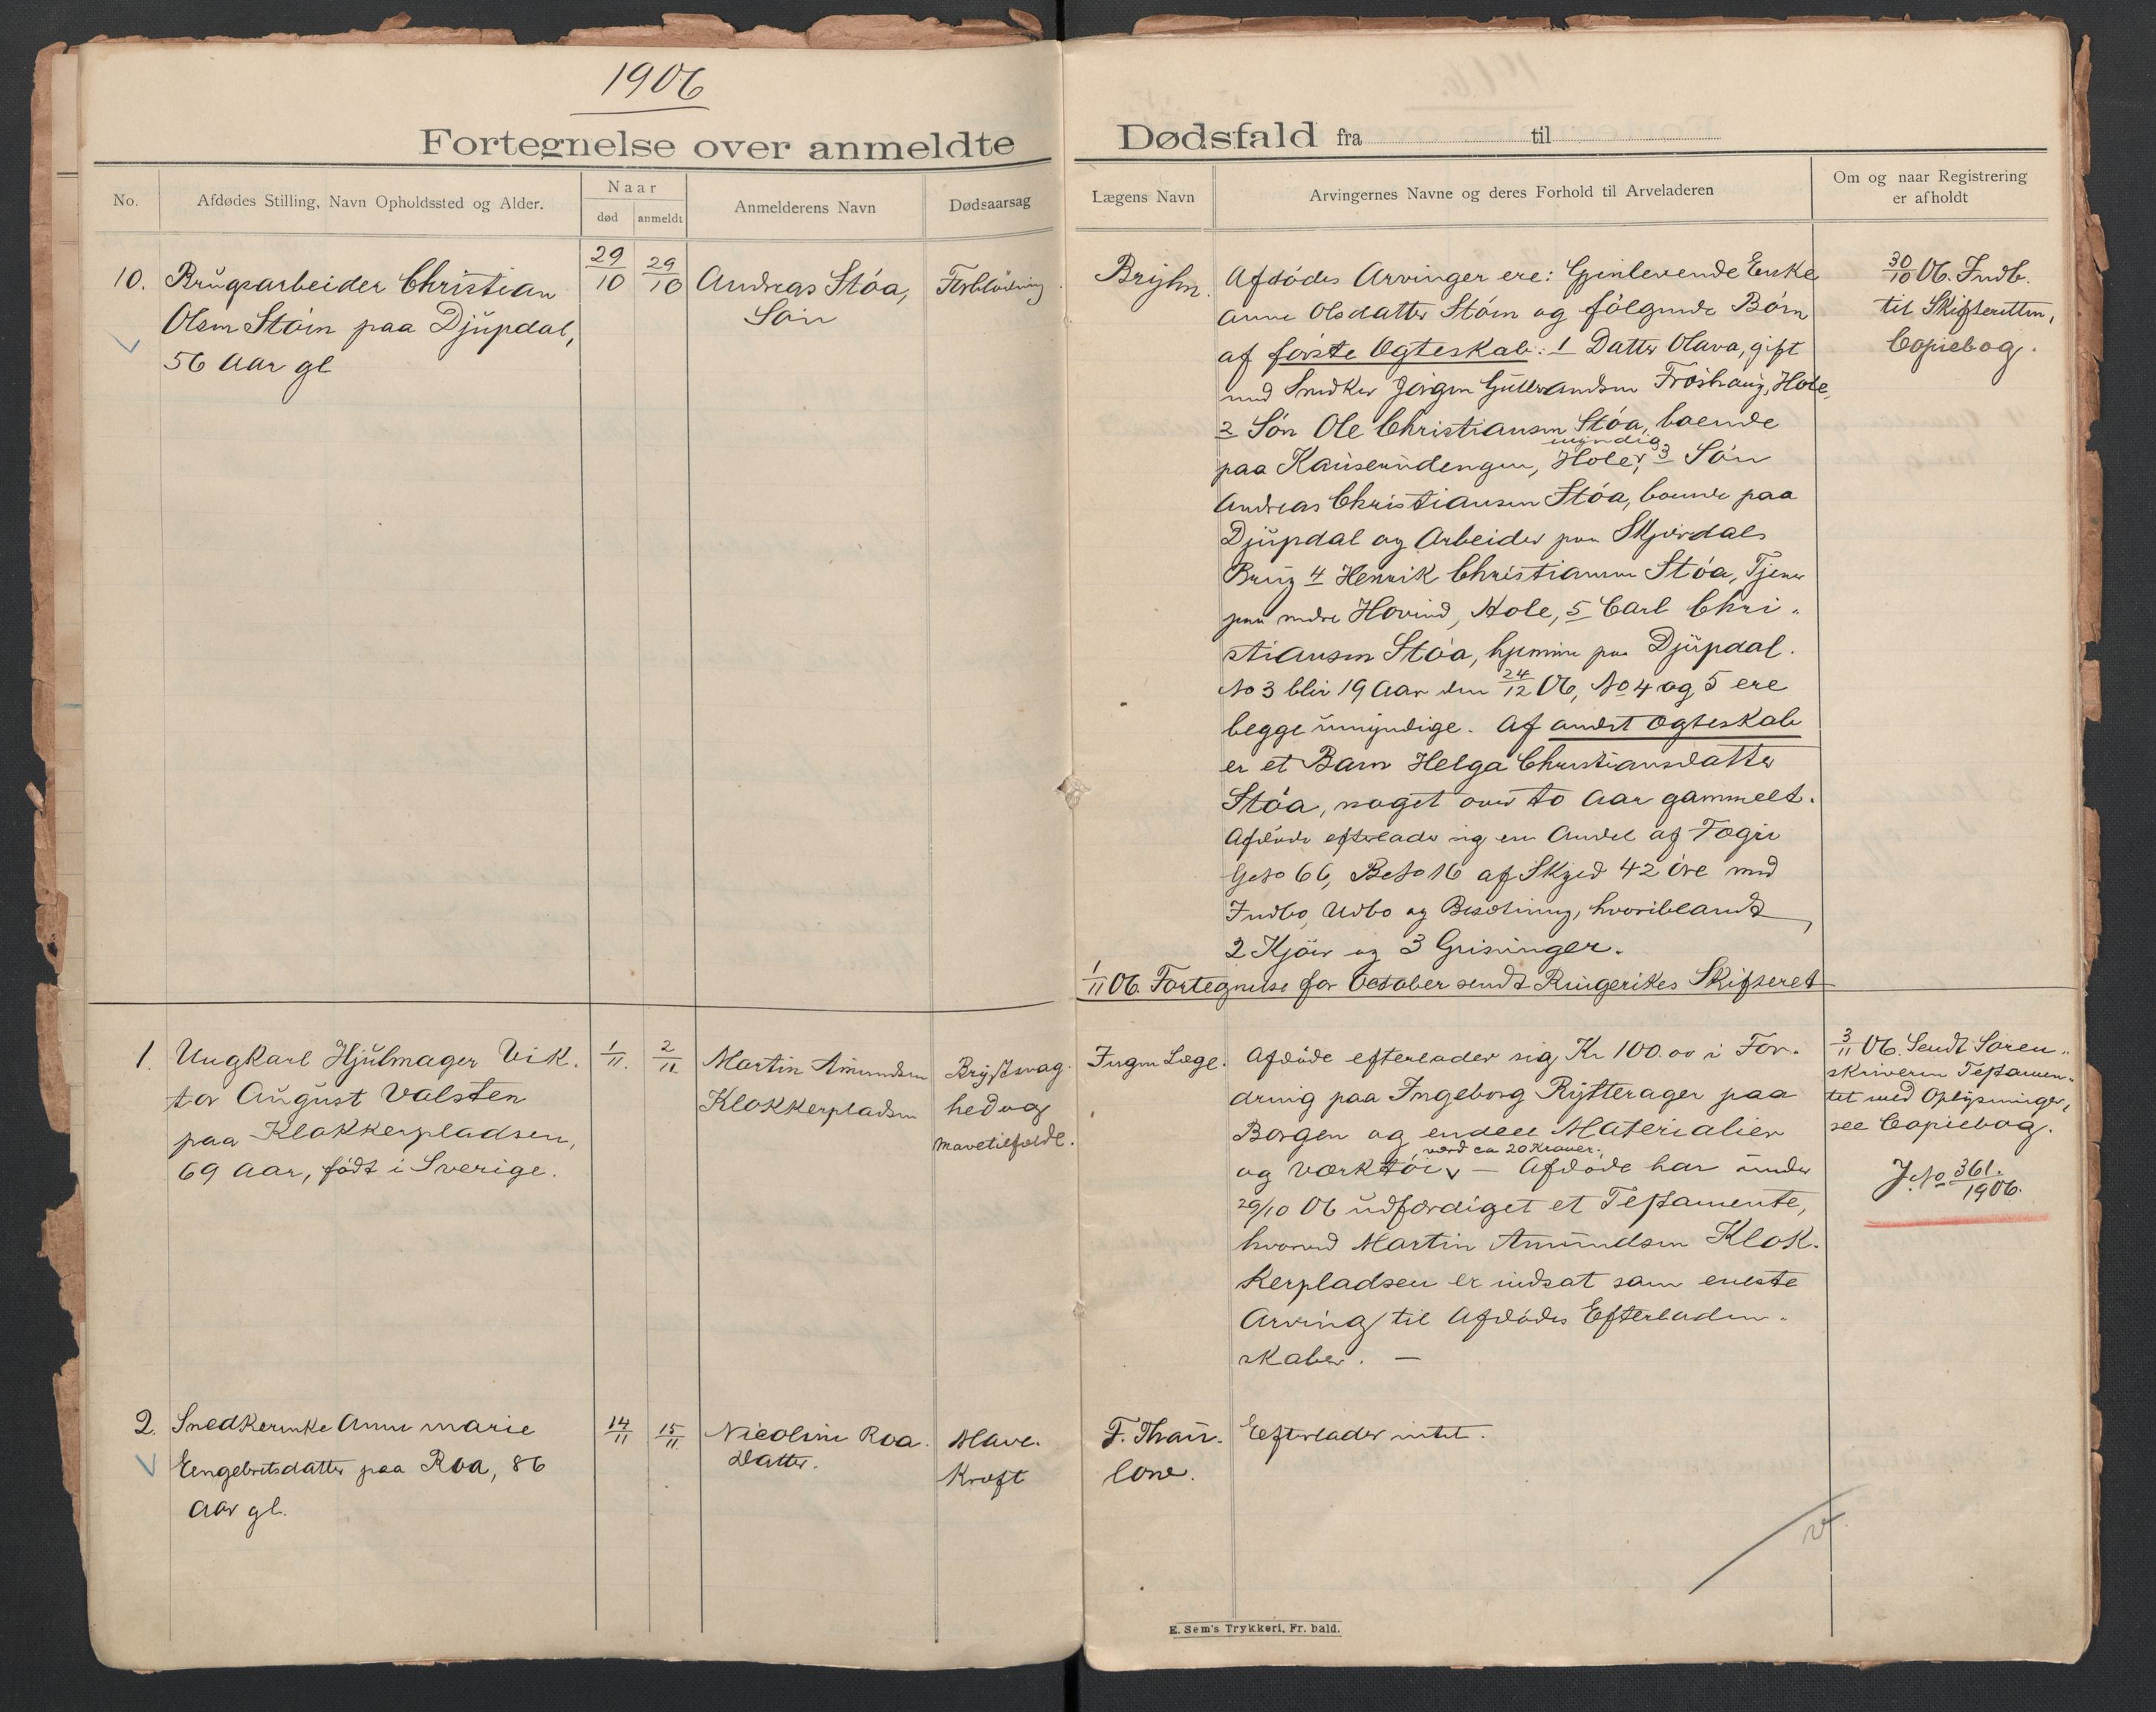 1906
Fortegnelse over anmeldte Dødsfald fra til
No.
Afdødes Stilling, Navn Opholdssted og Alder.
Naar
død
anmeldt
Anmelderens Navn
Dødsaarsag
Lægens Navn
Arvingernes Navne og deres Forhold til Arveladeren
Om og naar Registrering
er afholdt
10. Brugsarbeider Christian
Olsen Støen paa Djupdal,
56 Aar gl
29/10
29/10
Andreas Støa,
Søn
Forblødning
Bryhn.
Afdødes Arvinger ere: Gjenlevende Enke
Anne Olsdatter Støen og følgende Børn
af første Ægteskab: 1 Datter Olava, gift
med Snedker Jørgen Gulbrandsen Frøshaug, Hole,
2 Søn Ole Christiansen Støa, boende
myndig
paa Hole, 3 Søn
Andreas Christiansen Støa, boende paa
Djupdal og Arbeider paa Skjærdals
Brug 4 Henrik Christiansen Støa, Tjener
paa nedre Hovind, Hole, 5 Carl Chri-
stiansen Støa, hjemme paa Djupdal.
No 3 blir 19 Aar den 24/12 06, No 4 og 5 ere
begge umyndige. Af andet Ægteskab
er et Barn Helga Christiansdatter
Støa, noget over to Aar gammelt.
Afdøde efterlader sig en Andel af
Gno 66, Bno 16 af Skyld 42 Øre med
Indbo, Udbo og Besætning, hvoriblandt
2 Kjør og 3 Grisunger.
30/10 06. Indb.
til Skifteretten,
Copiebog.
1/11 06. Fortegnelse for October sendt Ringerikes Skifteret
1. Ungkarl Hjulmager Vik-
tor August Valsten
paa Klokkerpladsen,
69 Aar, født i Sverige.
1/11.
2/11
Martin Amundsen
Klokkerpladsen
Brystsvag-
hed og
mavetilfælde.
Ingen Læge.
Afdøde efterlader sig Kr 100.00 i For-
dring paa Ingeborg Rytterager paa
Borgen og endel Materialier
værd ca 20 Kroner.
og Værktøi — Afdøde har under
29/10 06 udfærdiget et Testamente,
hvorved Martin Amundsen Klok-
kerpladsen er indsat som eneste
Arving til Afdødes Efterladen-
skaber. —
3/11 06. Sendt Soren-
skriveren Testamen-
tet med Oplysninger,
see Copiebog.
J. No 361./1906.
2. Snedkerenke Anne Marie
Engebretsdatter paa Roa, 86
Aar gl.
14/11
15/11
Nicoline Roa.
Datter.
Mave-
Kræft
F. Thau-
low.
Efterlader intet.
E. Sem's Trykkeri, Fr. hald.